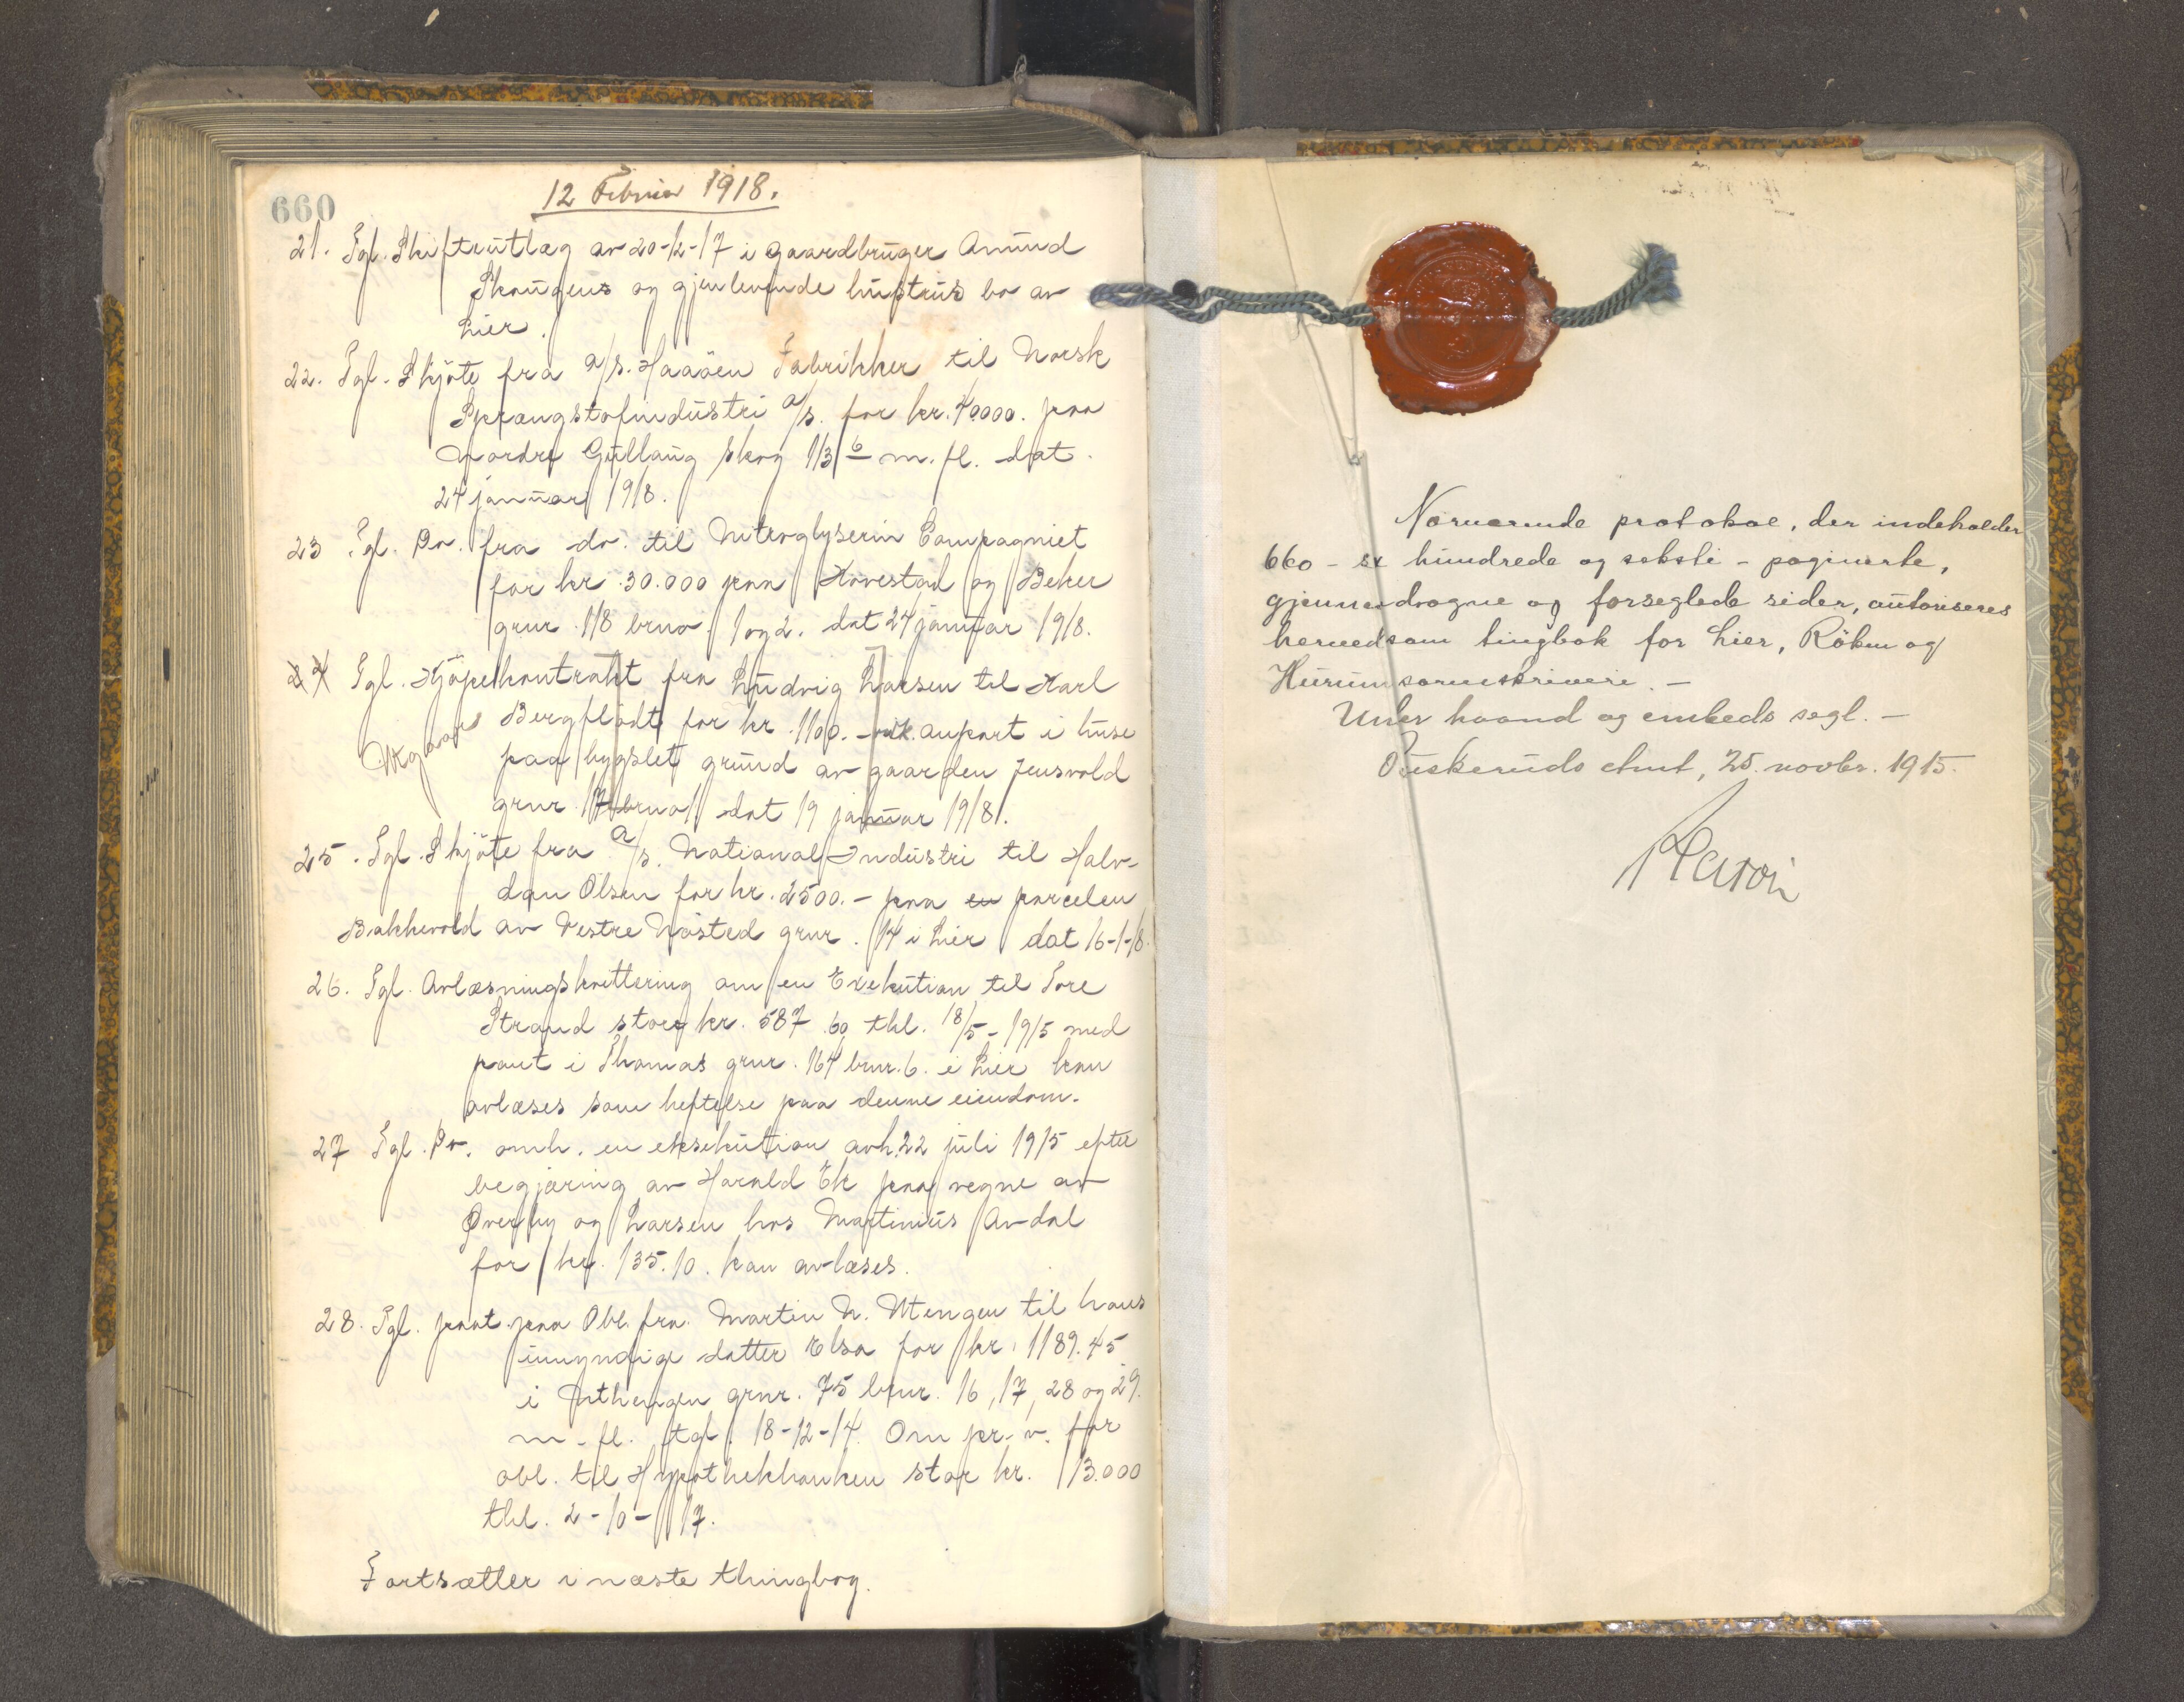 660
12 Februar 1918.
21. Tgl. Skifteutlæg av 20-12-17 i gaardbruger Amund
Skougens og gjenlevende hustrus bo av
Lier.
22. Tgl. Skjøte fra A/S. Haaøen Fabrikker til Norsk
Sprængstofindustri A/S. for kr. 40000. paa
Nordre Gullaug skog 113/6 m. fl. dat.
24 januar 1918.
23 Tgl. Do. fra do. til Nitroglyserin Compagniet
for kr. 30.000 paa Hovestad og Beker
gnur. 118 brno. 1 og 2. dat 24 januar 1918.
24 Tgl. Kjøpekontrakt fra Ludvig Larsen til Karl
Bergflødt for kr. 1100.- anpart i huse
Utgaar
paa bygslet grund av gaarden Jensvold
gnur. 17 brno 1 dat 19 januar 1918.
25. Tgl. Skjøte fra A/S. National Industri til Halv-
dan Olsen for kr. 2500.- paa en parcelen
Bakkevold av Vestre Nøsted gnur. 14 i Lier dat 16-1-18.
26. Tgl. Avlæsningskvittering om en Exekution til Tore
Strand stor kr. 587.60 thl. 18/5-1915 med
pant i Thomas gnur. 164 bnr. 6. i Lier kan
avlæses som heftelse paa denne eiendom.
27 Tgl. Do. omh. en eksekution avh. 22 juli 1915 efter
begjæring av Harald Ek paa vegne av
Øverby og Larsen hos Martinius Avdal
for kr. 135.10. kan avlæses.
28. Tgl. paat. paa Obl. fra Martin N. Utengen til hans
umyndige datter Elsa for kr. 1189.45
i Uthengen gnur. 75 bnur. 16, 17, 28 og 29.
m. fl. tgl. 18-12-14. Om pr. v. for
obl. til Hypothekbanken stor kr. 13.000
thl. 2-10-17.
Fortsætter i næste thingbog.
Nærværende protokol, der indeholder
660 - sex hundrede og seksti - paginerte,
gjennemdragne og forseglede sider, autoriseres
herved som tingbok for Lier, Röken og
Hurum sorenskriveri. -
Under haand og embeds segl. -
Buskeruds amt, 25. novbr. 1915.